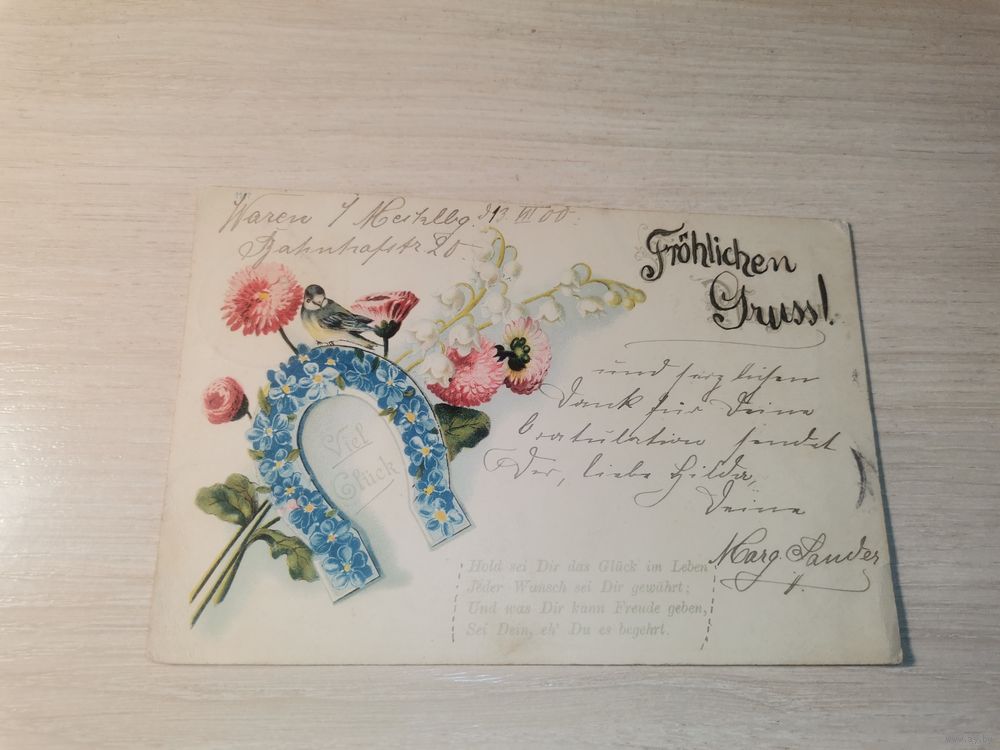 Waren i/ Mecklbg. d 13. VII 00.
Bahnhofstr 20
Fröhlichen
Gruss!
und herzlichen
Dank für Deine
Gratulation sendet
Dir, liebe Hilda,
Deine
Marg Sander
Viel
Glück
Hold sei Dir das Glück im Leben
Jeder Wunsch sei Dir gewährt;
Und was Dir kann Freude geben,
Sei Dein, eh' Du es begehrt.